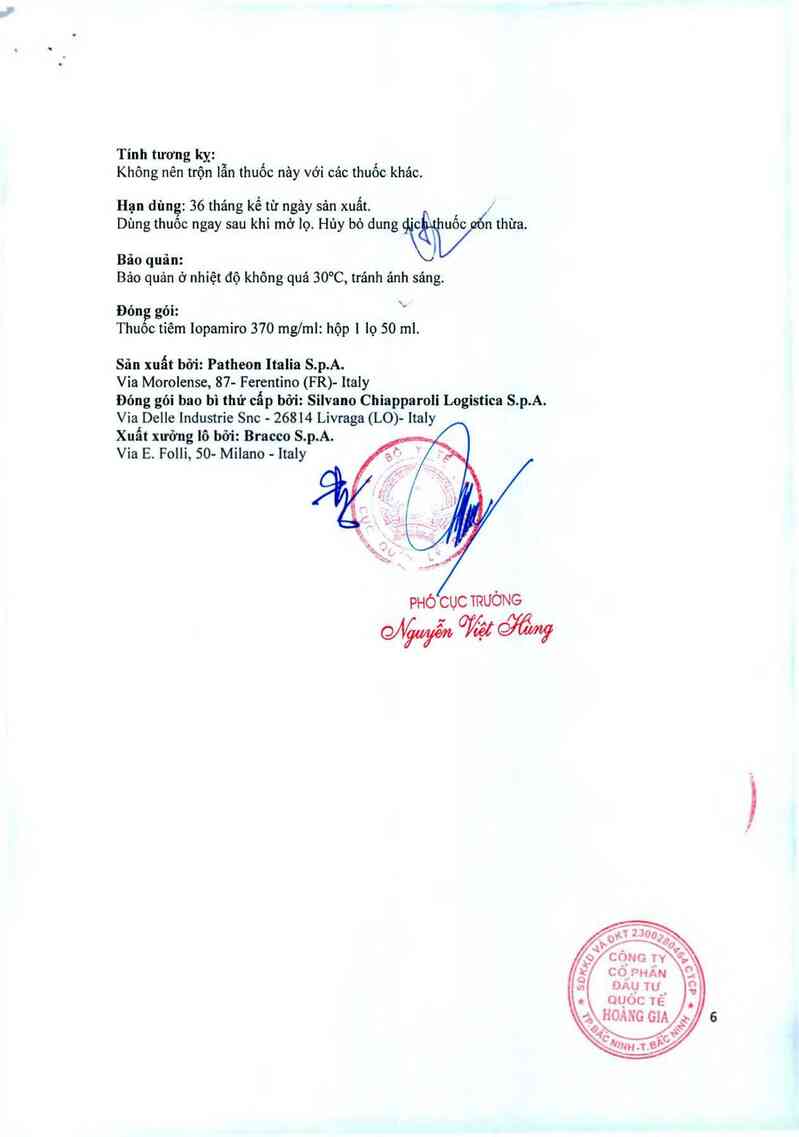 Tính tương kỵ:
Không nên trộn lẫn thuốc này với các thuốc khác.
Hạn dùng: 36 tháng kể từ ngày sản xuất.
Dùng thuốc ngay sau khi mở lọ. Hủy bỏ dung dịch thuốc còn thừa.
Bảo quản:
Bảo quản ở nhiệt độ không quá 30°C, tránh ánh sáng.
Đóng gói:
Thuốc tiêm Iopamiro 370 mg/ml: hộp 1 lọ 50 ml.
Sản xuất bởi: Patheon Italia S.p.A.
Via Morolense, 87- Ferentino (FR)- Italy
Đóng gói bao bì thứ cấp bởi: Silvano Chiapparoli Logistica S.p.A.
Via Delle Industrie Snc - 26814 Livraga (LO)- Italy
Xuất xưởng lô bởi: Bracco S.p.A.
Via E. Folli, 50- Milano - Italy
BỘ Y TẾ
CỤC QUẢN LÝ
PHÓ CỤC TRƯỞNG
Nguyễn Việt Hùng
SĐKKD VÀ ĐKT 2300280464 CTCP
CÔNG TY
CỔ PHẦN
ĐẦU TƯ
QUỐC TẾ
HOÀNG GIA
TP BẮC NINH-T.BẮC NINH
6